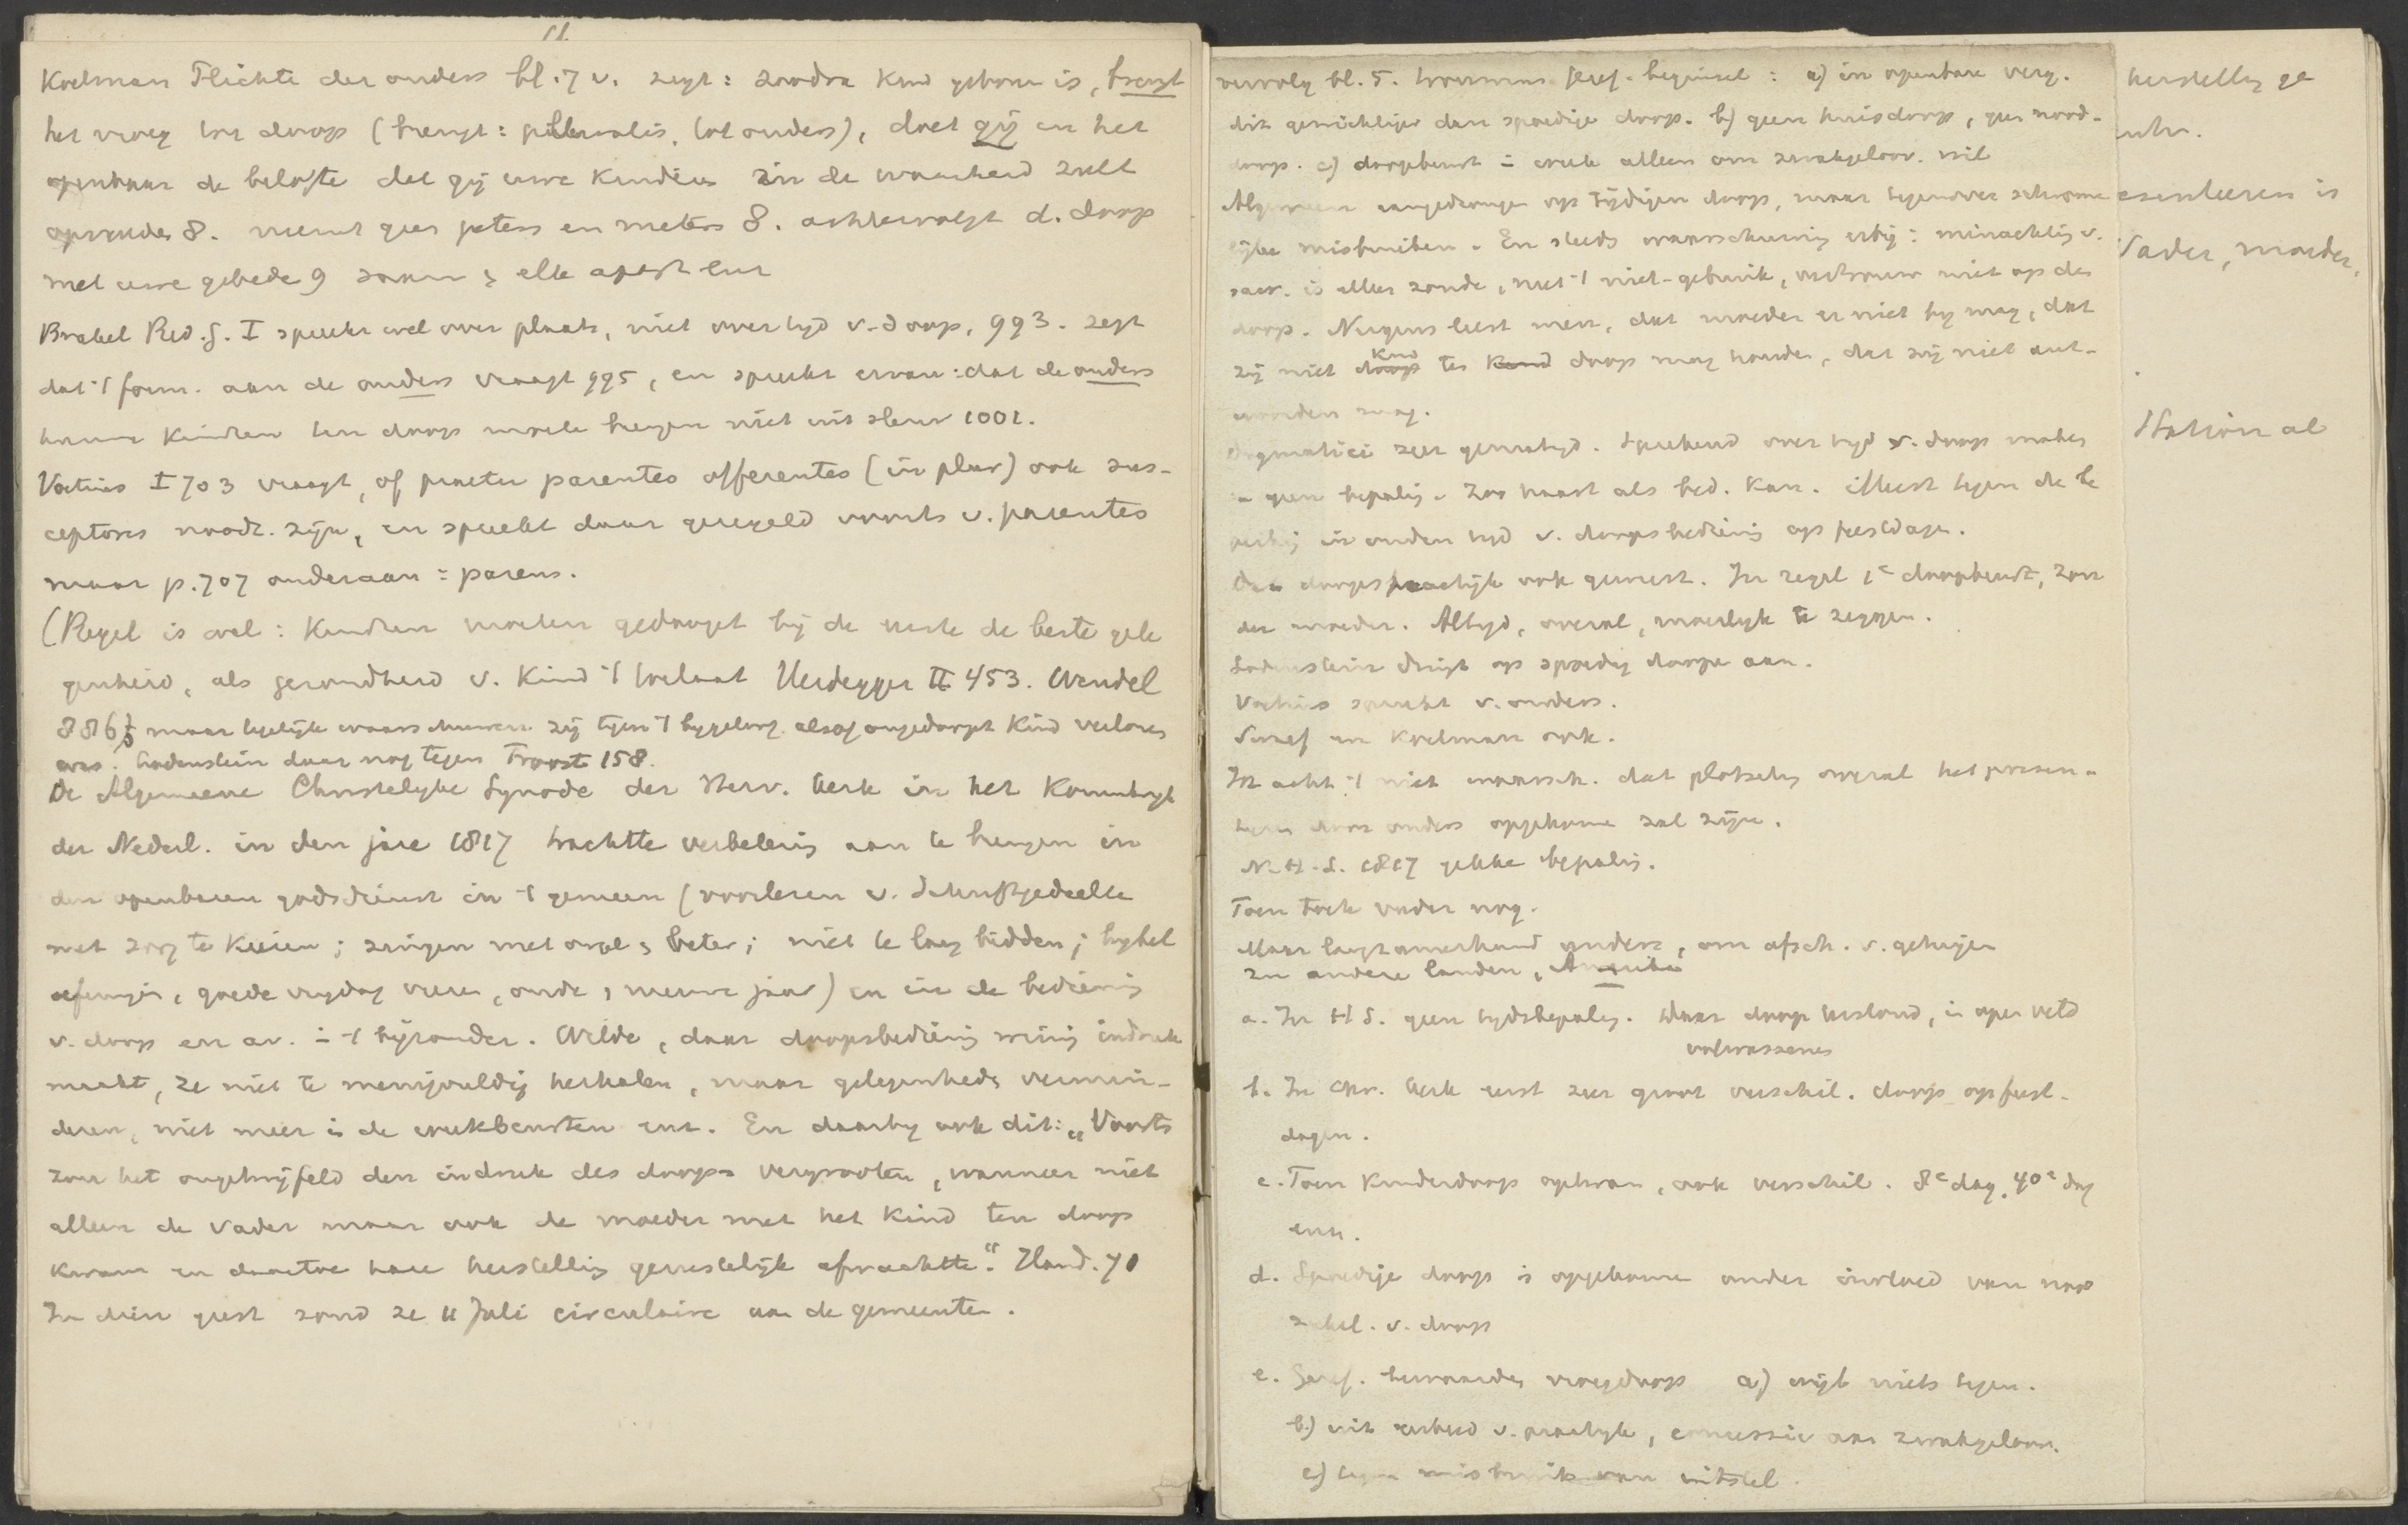 11.
Koelman Plichte der ouders bl. 7 v. zegt: zoodra kind geboren is, brengt
het vroeg tot doop (brengt: pluralis, tot ouders), doet gij in het
openbaar de belofte dat gij uwe kinderen in de waarheid zult
opvoeden 8. neemt geen peters en meters 8. achtervolgt d. doop
met uwe gebede 9
Brakel Red. G. I spreekt wel over plaats, niet over tyd v. doop, 993. zegt
dat 't form. aan de ouders vraagt 995, en spreekt ervan: dat de ouders
hunne kinderen ten doop moete brengen niet uit sleur 1001.
Voetius I 703 vraagt, of praeter parentes offerentes (in plur) ook sus-
ceptores noodz. zijn, en spreekt daar geregeld voorts v. parentes
maar p. 707 onderaan = parens.
(Regel is wel: kindren moeten gedoopt bij de eerste de beste gele
genheid, als gezondheid v. kind 't toelaat Heidegger II 453. Wendel
886 maar tegelijk waarschuwen zij tegen 't bygeloof alsof ongedoopt kind verloren
was. Lodenstein daar nog tegen Troost 158.
De Algemeene Christelyke Synode der Herv. Kerk in het Koninkryk
der Nederl. in den jare 1817 trachtte verbetering aan te brengen in
den openbaren godsdienst in 't gemeen (voorlezen v. Schriftgedeelte
met zorg te kiezen; zingen met orgel beter; niet te lang bidden; bybel
oefeningen, goede vrydag vieren, oude, nieuwe jaar) en in de bediening
v. doop en av. in 't bijzonder. Wilde, daar doopsbediening weinig indruk
maakt, ze niet te menigvuldig herhalen, maar gelegenheds vermin-
deren, niet meer in de weekbeurten enz. En daarby ook dit: „Voorts
zou het ongetwijfeld den indruk des doops vergrooten, wanneer niet
alleen de vader maar ook de moeder met het kind ten doop
kwam en daartoe hare herstelling gerustelijk afwachtte." Hand. 70
In dien geest zond ze 11 Juli circulaire aan de gemeenten.
vervolg bl. 5. Geref. beginsel: a) in openbare verg.
dit gewichtiger dan spoedige doop. b) geen huisdoop, geen nood-
doop. c) doopbeurt in week alleen om zwakgeloov. wil
Algemeen aangedrongen op tijdigen doop, maar tegenover schrome
lijke misbruiken. En steeds waarschuwing erbij: minachting v.
sacr. is alleen zonde, niet 't niet-gebruik, vertrouw niet op den
doop. Nergens leest men, dat moeder er niet by mag, dat
zij niet kind ten doop mag houden, dat zij niet ant-
woorden mag.
Dogmatici zeer gematigd. Sprekend over tyd v. doop maken
geen bepaling. Zoo haast als bed. kan. Meest tegen de be
perking in ouden tyd v. doopsbediening op feestdagen.
ook geweest. In regel 1e doopbeurt, zon
der moeder. Altyd, overal, moeilyk te zeggen.
Lodenstein dringt op spoedig doopen aan.
Voetius spreekt v. ouders.
en Koelman ook.
Ik acht 't niet waarsch. dat plotseling overal het presen-
teeren door ouders opgekomen zal zijn.
N.H.S. 1817 gekke bepaling.
Toen trok vader nog.
Maar langzamerhand anders, om afsch. v. getuigen
In andere landen, Amerika
a. In H S. geen tydsbepaling. Waar doop bestond, in open veld
volwassenen
b. In Chr. kerk eerst zeer groot verschil. doop op feest-
dagen.
c. Toen kinderdoop opkwam, ook verschil. 8e dag, 40e dag
enz.
d. Spoedige doop is opgekomen onder invloed van nood
zakel. v. doop
e. Geref. bewaarden vroegdoop a) wijl niets tegen.
b) uit eerbied v. practyk, concessie aan zwakgeloov.
c) tegen misbruik van uitstel.
herstelling ge
esenteeren is
Vader, moeder,